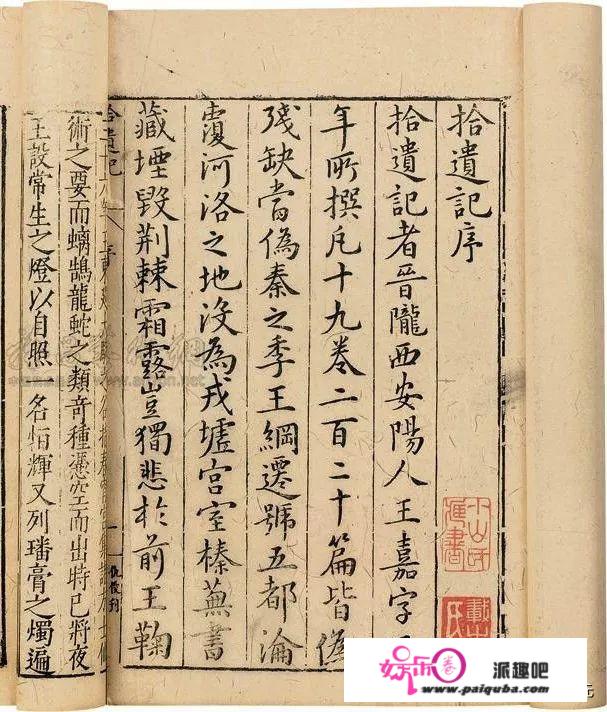 拾遺記序
拾遺記者晉隴西安陽人王嘉字
年所撰凡十九卷二百二十篇皆為
残缺當偽秦之季王綱遷號五都淪
覆河洛之地沒為戎墟宮室榛蕪書
藏堙毀荆棘霜露豈獨悲於前王鞠
拾遺記
術之要而螭鵠龍蛇之類奇種憑空而出時已將夜
王設常生之燈以自照一名恒輝又列璠膏之燭遍
派趣吧
www.paiquba.com